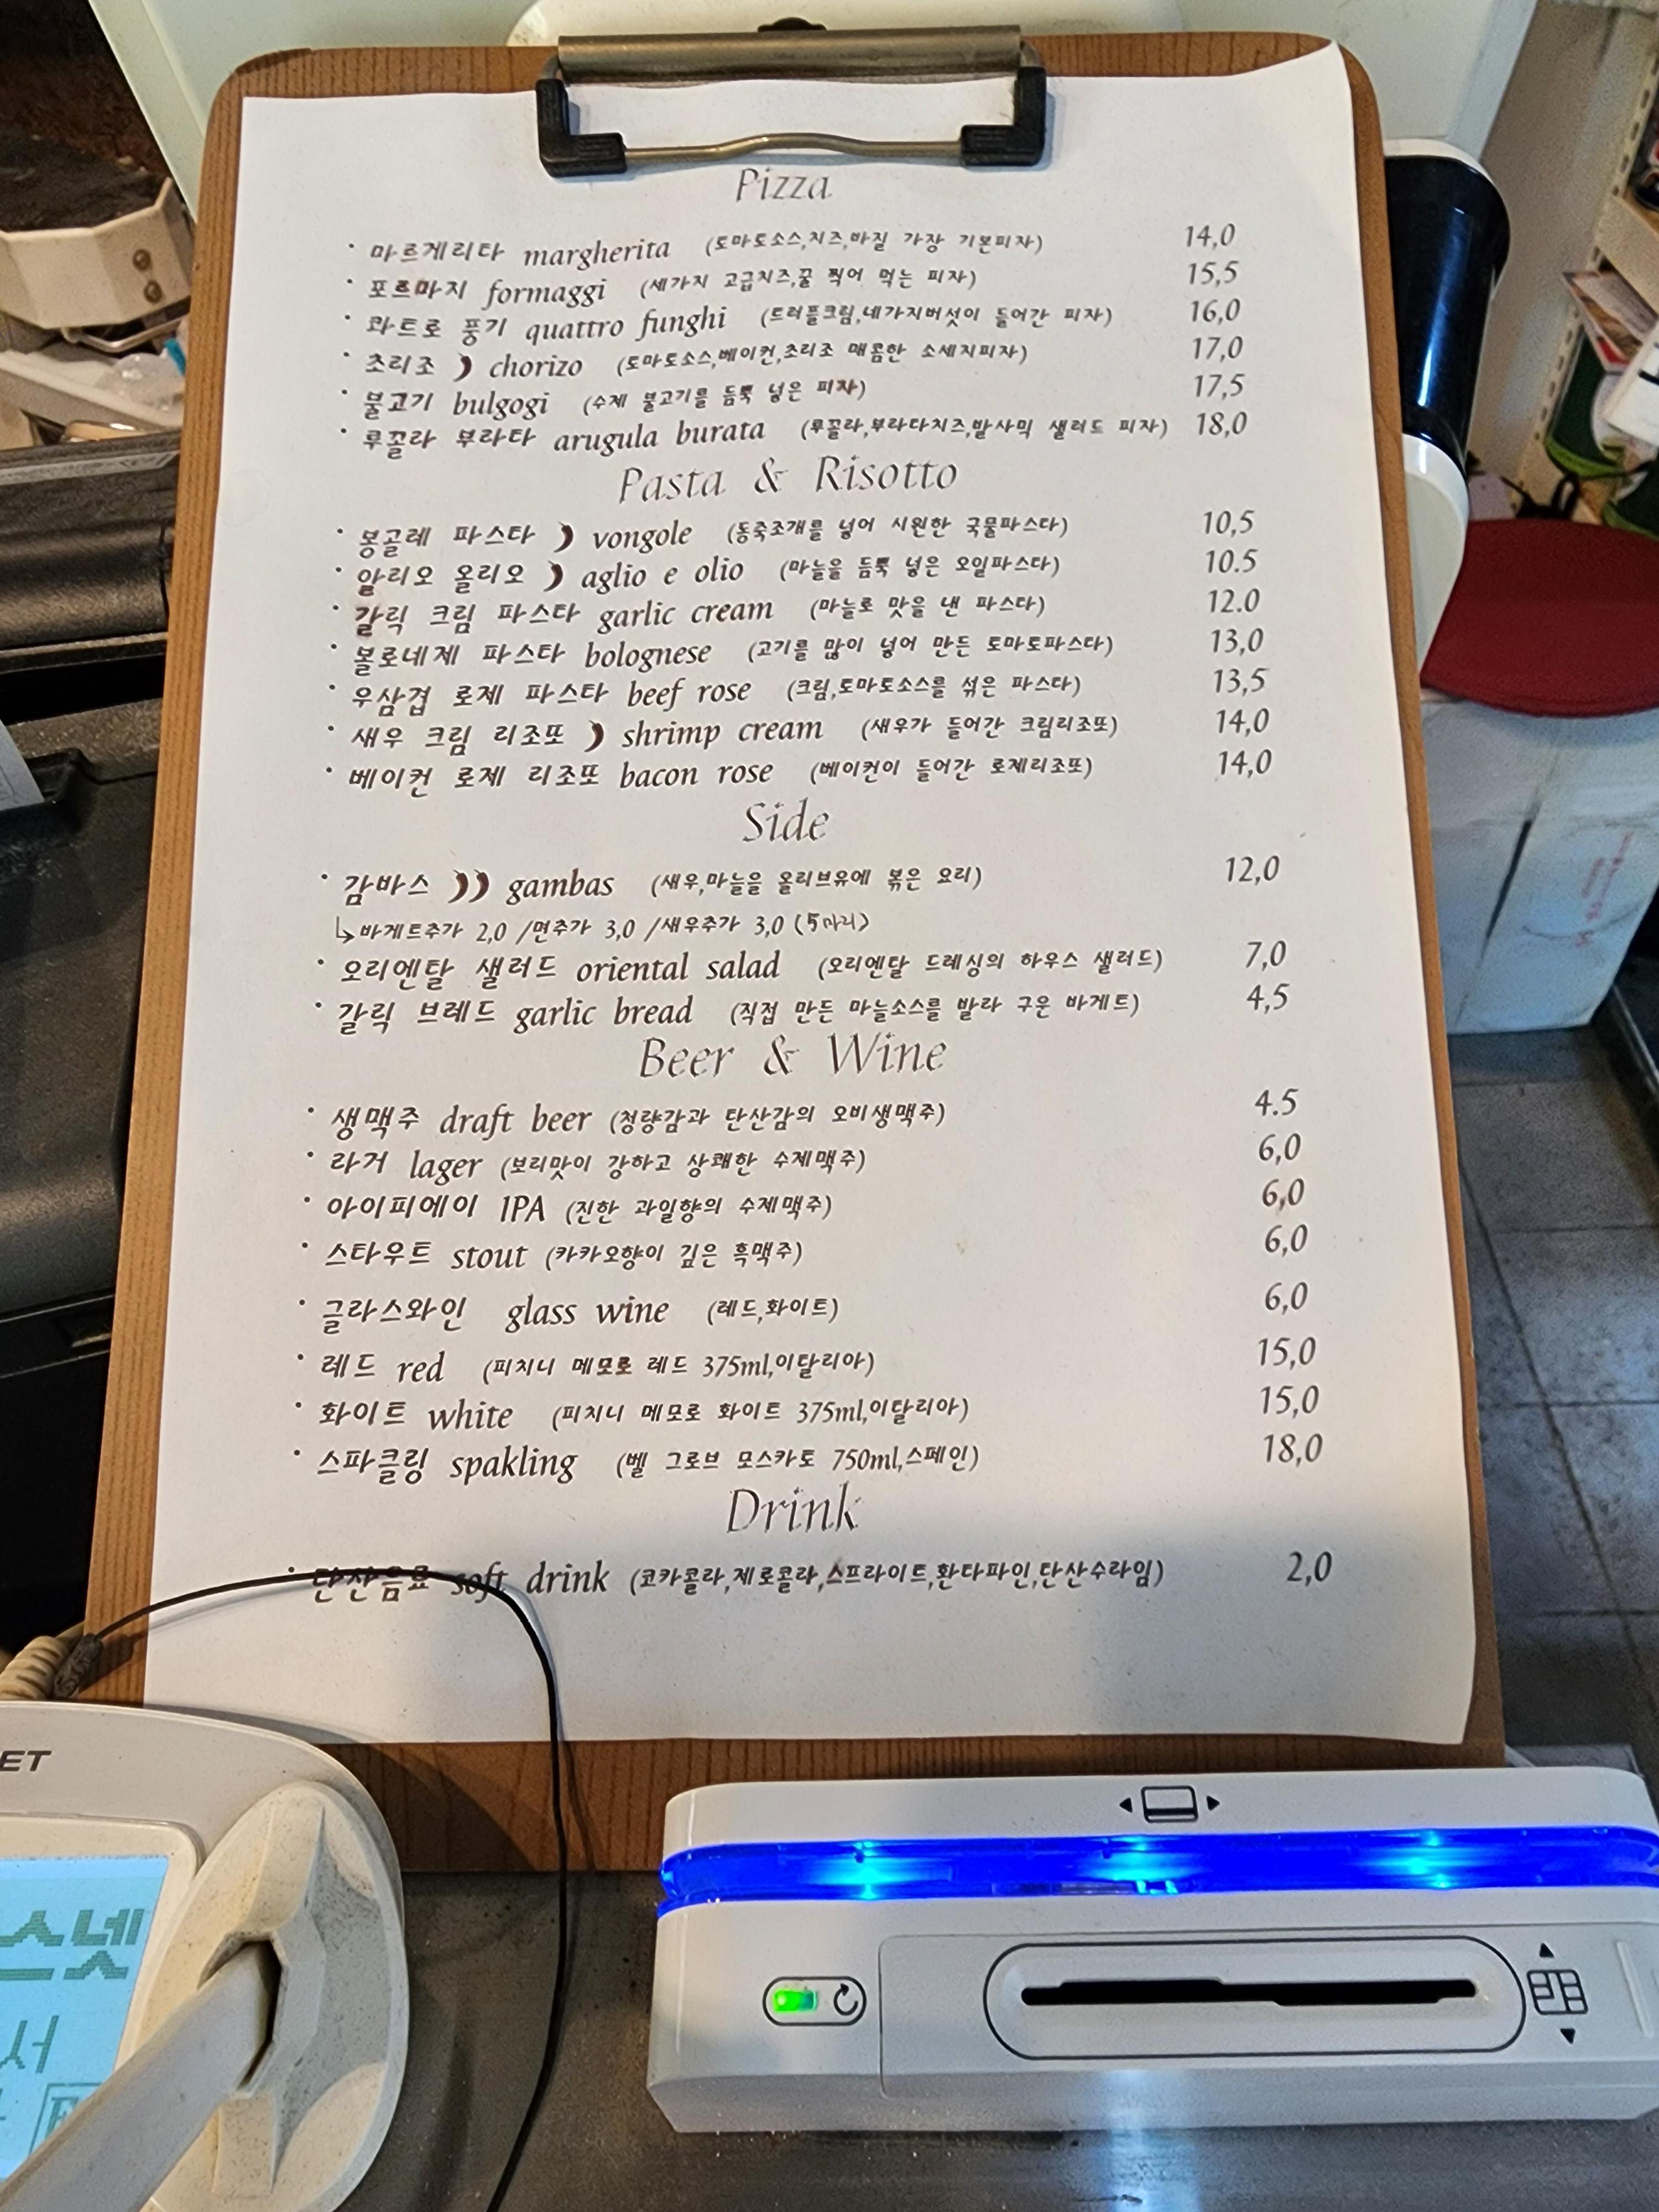 Pizza
· 마르게리타 margherita (토마토소스,치즈,바질 가장 기본피자) 14,0
· 포르마지 formaggi (세가지 고급치즈,꿀 찍어 먹는 피자) 15,5
· 콰트로 풍기 quattro funghi (트러플크림,네가지버섯이 들어간 피자) 16,0
· 초리조 chorizo (토마토소스,베이컨,초리조 매콤한 소세지피자) 17,0
· 불고기 bulgogi (수제 불고기를 듬뿍 넣은 피자) 17,5
· 루꼴라 부라타 arugula burata (루꼴라,부라타치즈,발사믹 샐러드 피자) 18,0
Pasta & Risotto
· 봉골레 파스타 vongole (동죽조개를 넣어 시원한 국물파스타) 10,5
· 알리오 올리오 aglio e olio (마늘을 듬뿍 넣은 오일파스타) 10.5
· 갈릭 크림 파스타 garlic cream (마늘로 맛을 낸 파스타) 12.0
· 볼로네제 파스타 bolognese (고기를 많이 넣어 만든 토마토파스타) 13,0
· 우삼겹 로제 파스타 beef rose (크림,토마토소스를 섞은 파스타) 13,5
· 새우 크림 리조또 shrimp cream (새우가 들어간 크림리조또) 14,0
· 베이컨 로제 리조또 bacon rose (베이컨이 들어간 로제리조또) 14,0
Side
· 감바스 gambas (새우,마늘을 올리브유에 볶은 요리) 12,0
↳바게트추가 2,0 /면추가 3,0 /새우추가 3,0 (5마리)
· 오리엔탈 샐러드 oriental salad (오리엔탈 드레싱의 하우스 샐러드) 7,0
· 갈릭 브레드 garlic bread (직접 만든 마늘소스를 발라 구운 바게트) 4,5
Beer & Wine
· 생맥주 draft beer (청량감과 탄산감의 오비생맥주) 4.5
· 라거 lager (보리맛이 강하고 상쾌한 수제맥주) 6,0
· 아이피에이 IPA (진한 과일향의 수제맥주) 6,0
· 스타우트 stout (카카오향이 깊은 흑맥주) 6,0
· 글라스와인 glass wine (레드,화이트) 6,0
· 레드 red (피치니 메모로 레드 375ml,이탈리아) 15,0
· 화이트 white (피치니 메모로 화이트 375ml,이탈리아) 15,0
· 스파클링 spakling (벨 그로브 모스카토 750ml,스페인) 18,0
Drink
· 탄산음료 soft drink (코카콜라,제로콜라,스프라이트,환타파인,탄산수라임) 2,0
ET
스넷